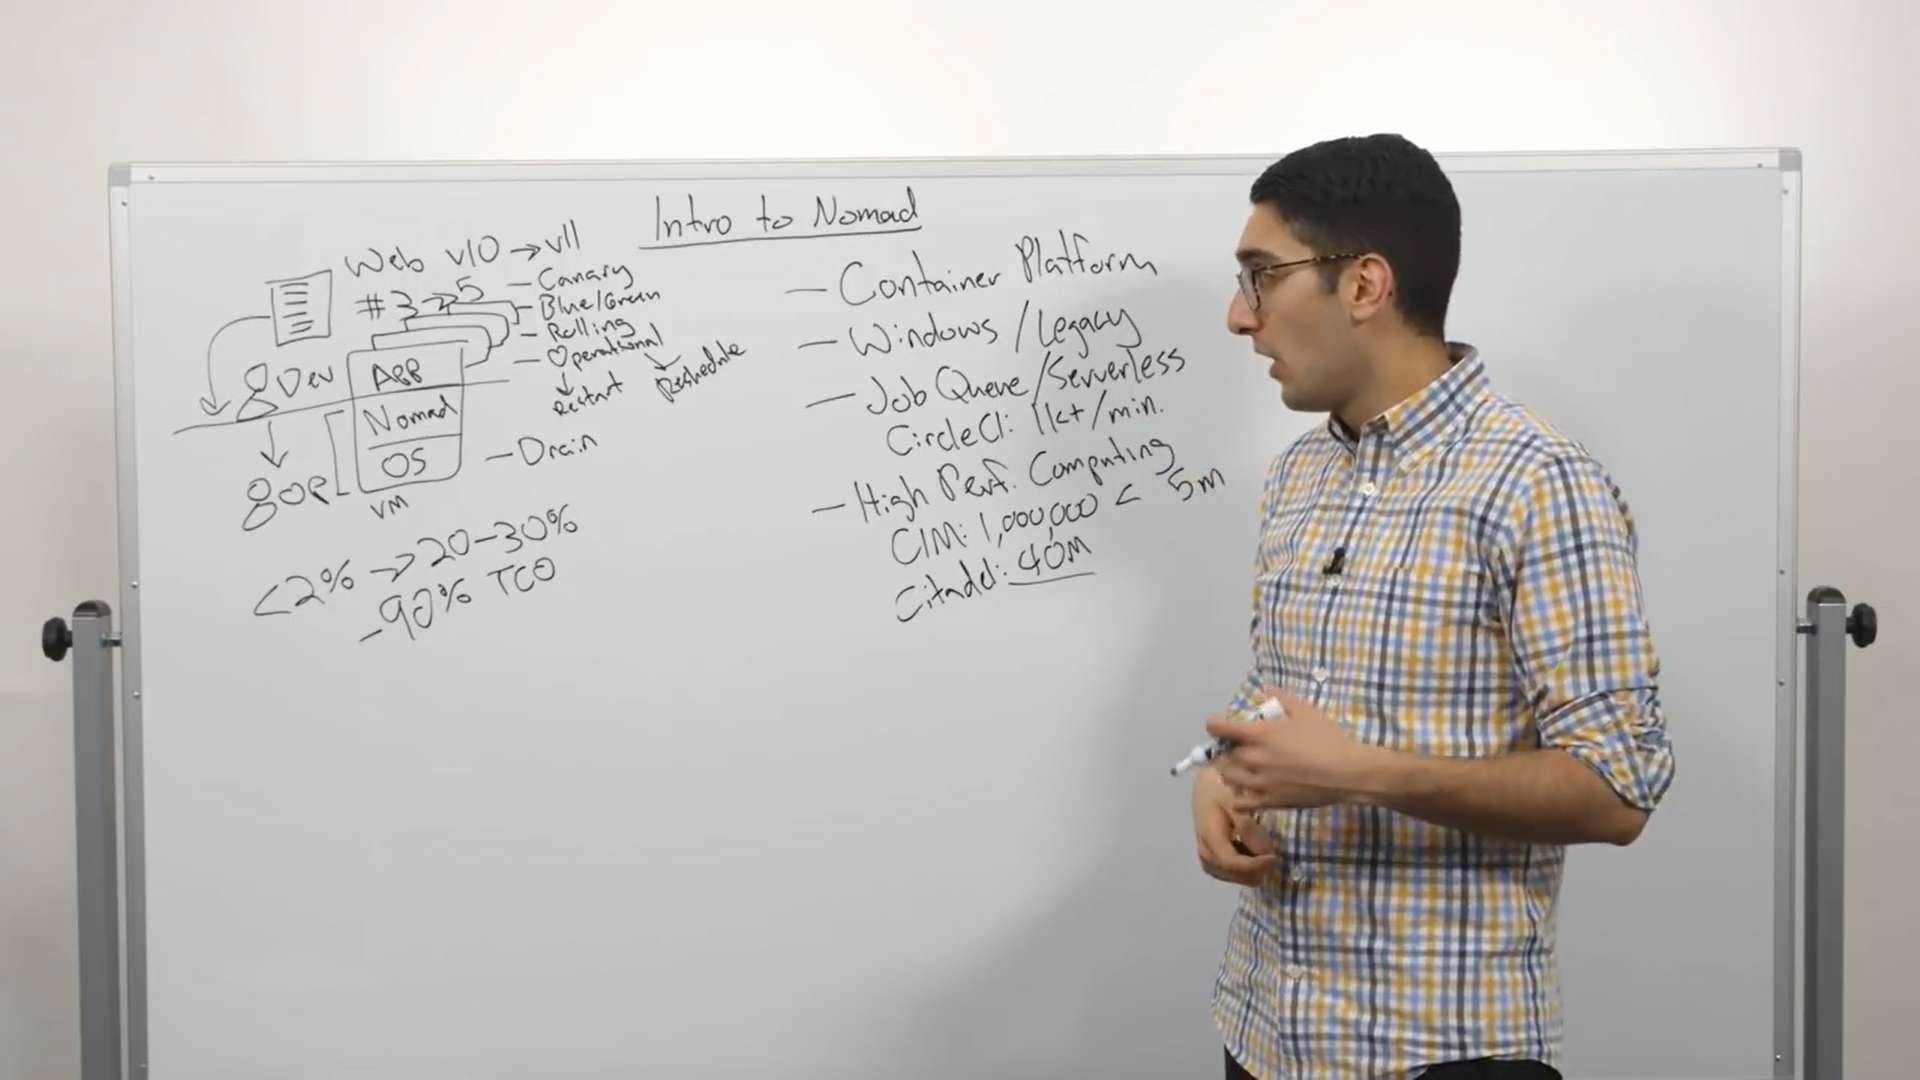 Intro to Nomad
Web v10 → v11
#3→5
- Canary
- Blue/Green
- Rolling
- Operational
Restart
Reshedule
Dev
App
Nomad
OS
VM
OP
- Drain
<2% → 20-30%
-90% TCO
- Container Platform
- Windows/Legacy
- Job Queue/Serverless
CircleCI: 1k+/min.
- High Perf. Computing
C1M: 1,000,000 < 5m
Citadel: 40M